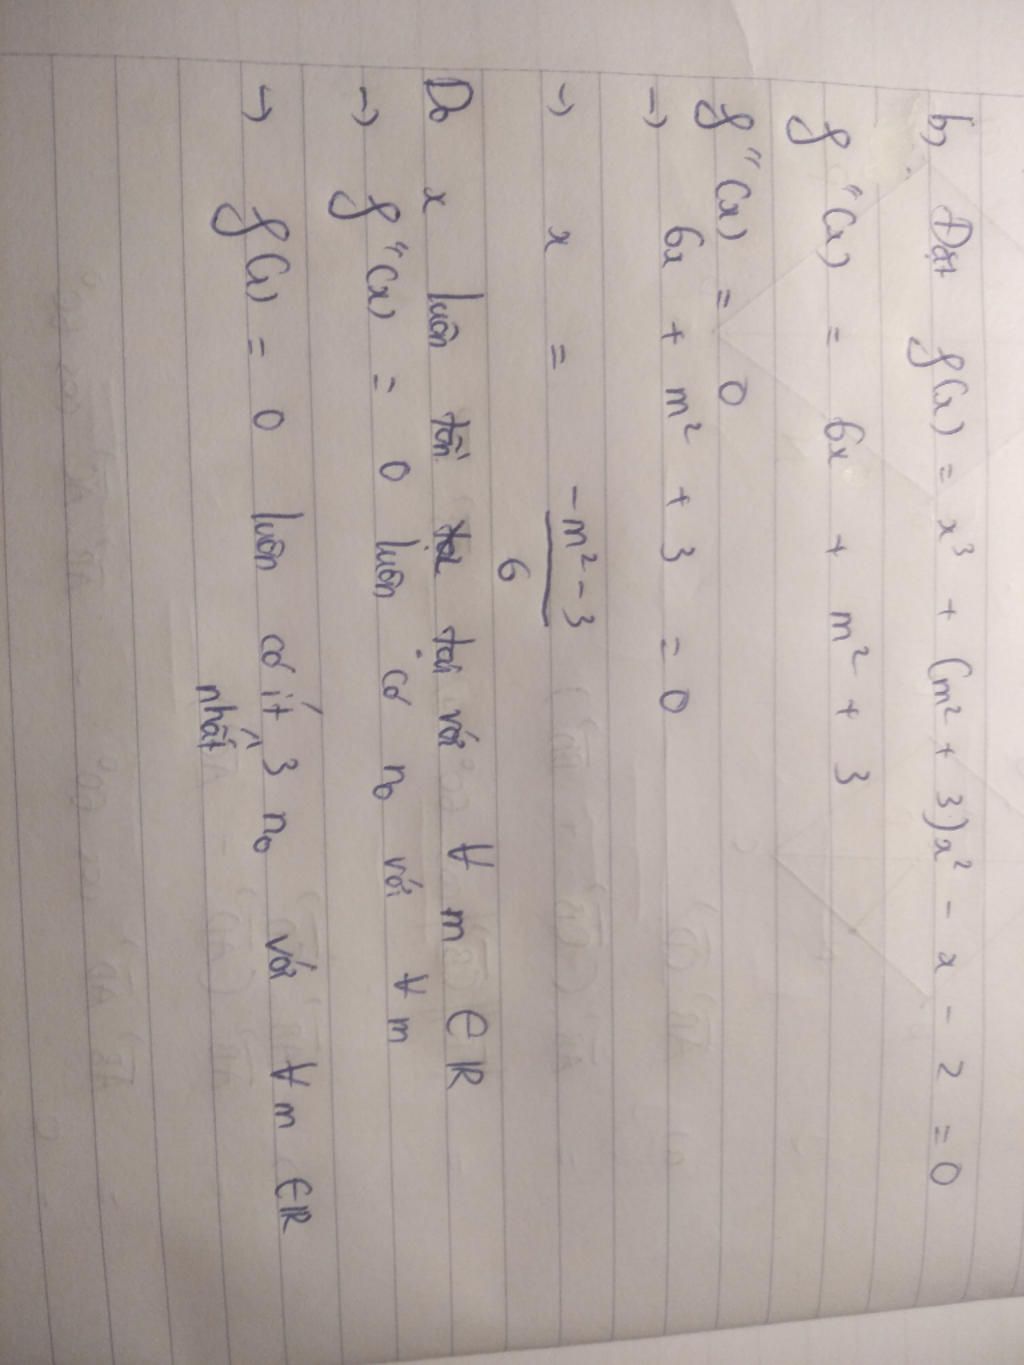 b) Đặt f(x) = x³ + (m² + 3)x² - x - 2 = 0
f"(x) = 6x + m² + 3
f"(x) = 0
→ 6x + m² + 3 = 0
→ x = \frac{-m² - 3}{6}
Do x luôn tồn tại với ∀ m ∈ ℝ
→ f"(x) = 0 luôn có n₀ với ∀ m
→ f(x) = 0 luôn có ít 3 n₀ với ∀ m ∈ ℝ
nhất